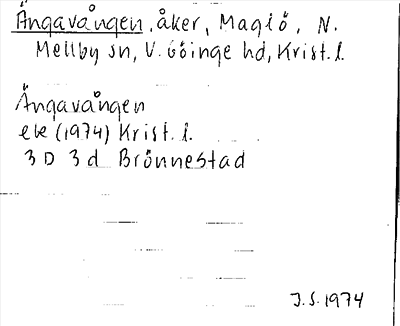 Ängavången, åker, Maglö, N.
Mellby sn, V. Göinge hd, Krist. l.
Ängavången
ek (1974) Krist. l.
3 D 3 d Brönnestad
J.S. 1974